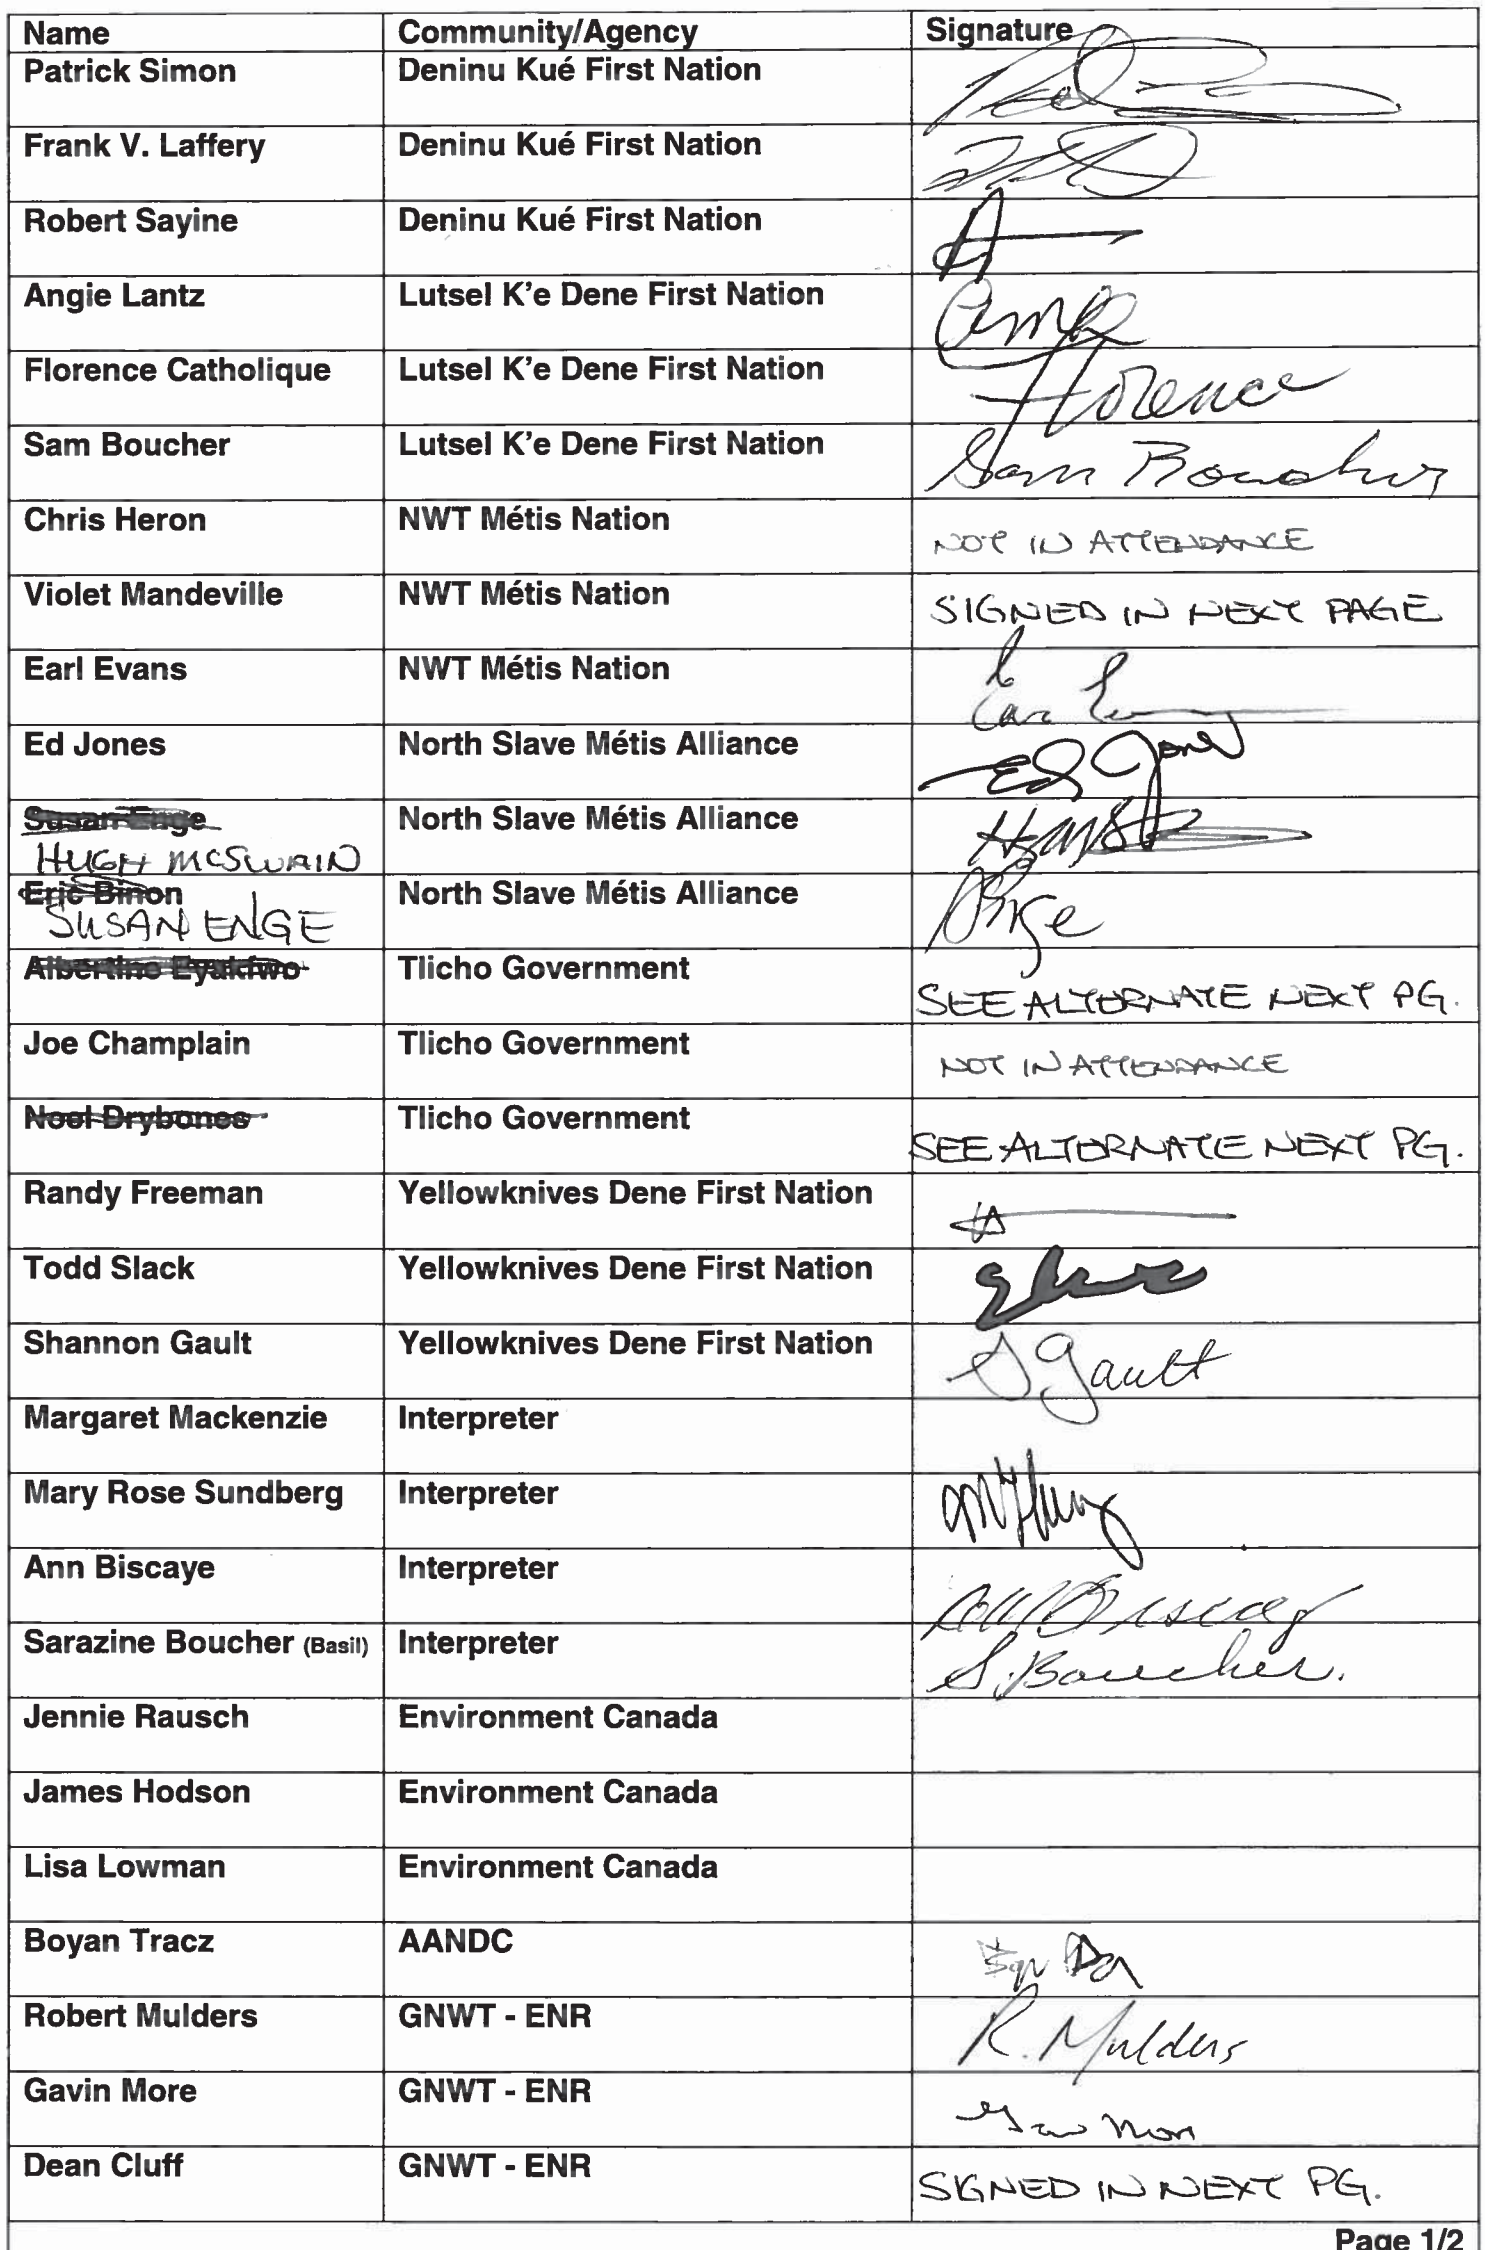 Name Community/Agency Signature
Patrick Simon Deninu Kué First Nation
Frank V. Laffery Deninu Kué First Nation
Robert Sayine Deninu Kué First Nation
Angie Lantz Lutsel K'e Dene First Nation
Florence Catholique Lutsel K'e Dene First Nation Florence
Sam Boucher Lutsel K'e Dene First Nation Sam Boucher
Chris Heron NWT Métis Nation NOT IN ATTENDANCE
Violet Mandeville NWT Métis Nation SIGNED IN NEXT PAGE
Earl Evans NWT Métis Nation
Ed Jones North Slave Métis Alliance Ed Jones
Susan Enge North Slave Métis Alliance
HUGH MCSWAIN
Eric Binon North Slave Métis Alliance
SUSAN ENGE
Albertine Eyakfwo Tlicho Government
SEE ALTERNATE NEXT PG.
Joe Champlain Tlicho Government NOT IN ATTENDANCE
Noel Drybones Tlicho Government
SEE ALTERNATE NEXT PG.
Randy Freeman Yellowknives Dene First Nation
Todd Slack Yellowknives Dene First Nation
Shannon Gault Yellowknives Dene First Nation S Gault
Margaret Mackenzie Interpreter
Mary Rose Sundberg Interpreter
Ann Biscaye Interpreter
Sarazine Boucher (Basil) Interpreter S. Boucher.
Jennie Rausch Environment Canada
James Hodson Environment Canada
Lisa Lowman Environment Canada
Boyan Tracz AANDC
Robert Mulders GNWT - ENR R. Mulders
Gavin More GNWT - ENR
Dean Cluff GNWT - ENR SIGNED IN NEXT PG.
Page 1/2